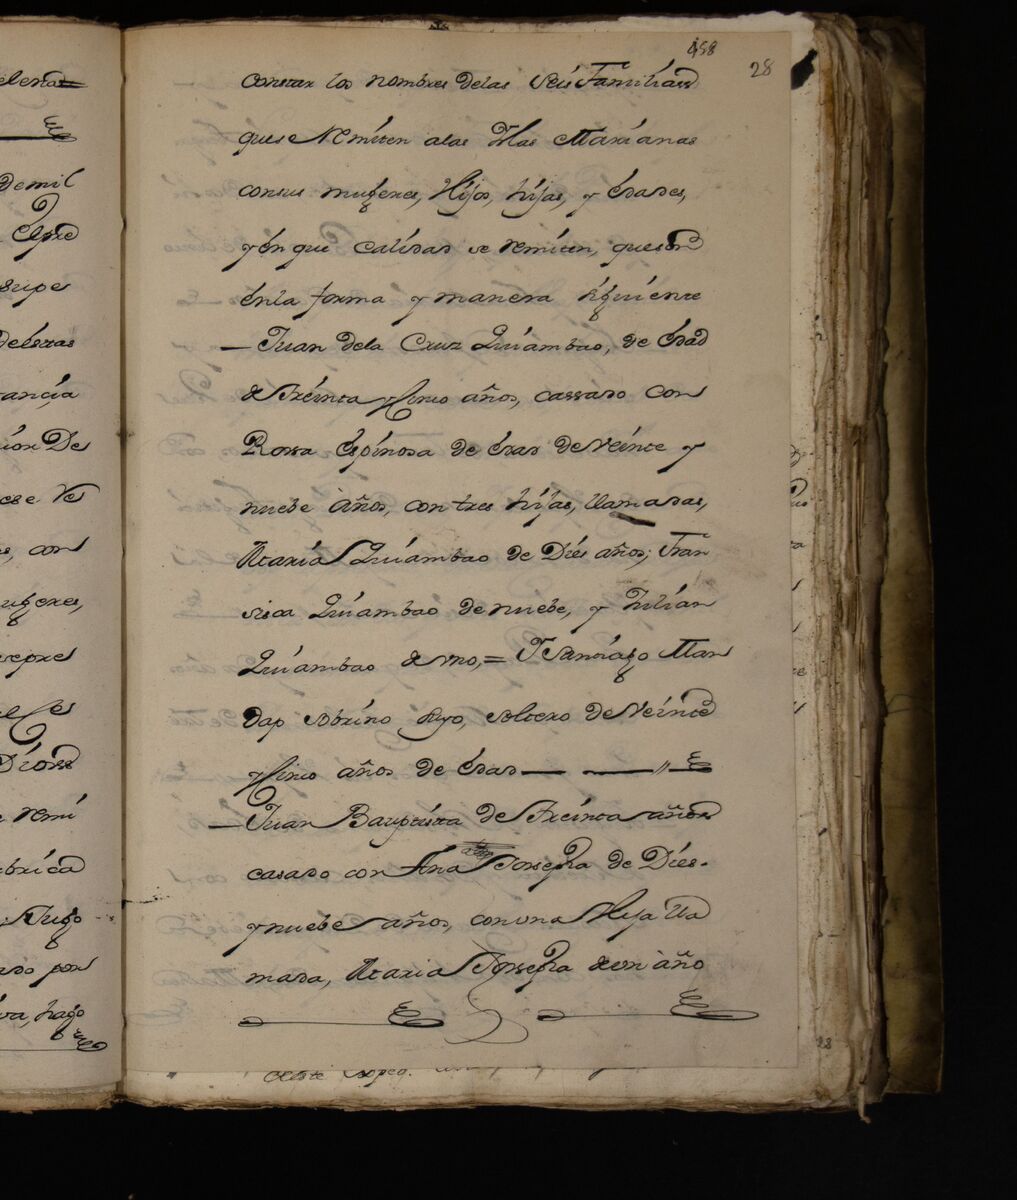 458
28
constar los nombres delas seis Familias
quese Remiten alas Yslas Marianas
consus mugeres, Hijos, hijas, y edades,
y en que calidad se remiten, queson
enla forma y manera siguiente
— Juan dela Cruz Quiambao, de edad
de treinta y Cinco años, cassado con
Rossa Espinosa de edad de Veinte y
nuebe años, con tres hijas, llamadas,
Maria Quiambao de Dies años; Fran
sisca Quiambao de nuebe, y Julian
Quiambao de uno, = Y Santiago Man
dap sobrino suyo, soltero de Veinte
y Cinco años de edad —
— Juan Bauptista de treinta años
casado con Ana Josepha de Dies-
y nuebe años, con una Hija lla
mada, Maria Josepha de un año
elena=
demil
supe
delestas
tancia
ion De
ese Ve
s, con
ugeres,
Remi
ubrica
Jusgo
ado por
va, hago
28